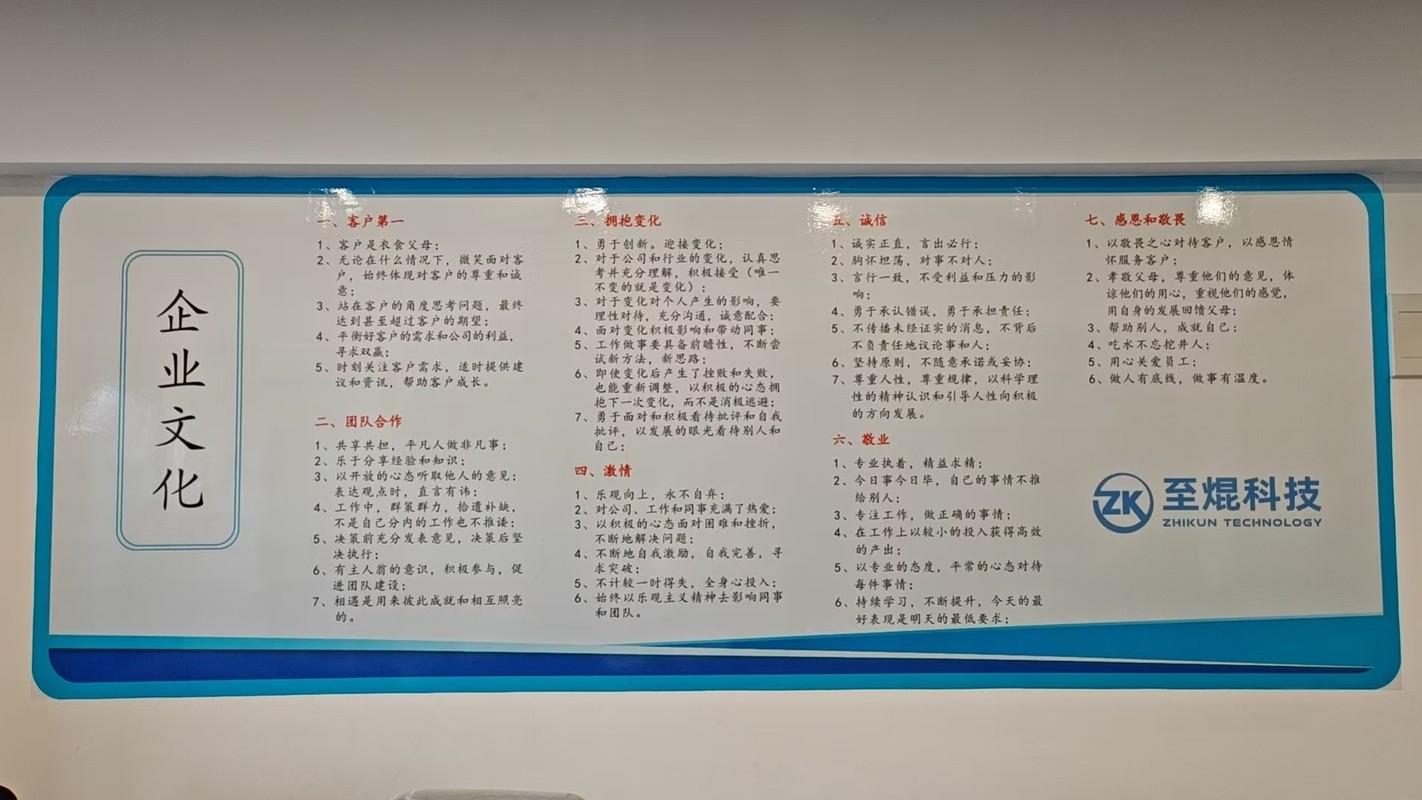 企业文化
一、客户第一
1、客户是衣食父母；
2、无论在什么情况下，微笑面对客
户，始终体现对客户的尊重和诚
意；
3、站在客户的角度思考问题，最终
达到甚至超过客户的期望；
4、平衡好客户的需求和公司的利益，
寻求双赢；
5、时刻关注客户需求，适时提供建
议和资讯，帮助客户成长。
二、团队合作
1、共享共担，平凡人做非凡事；
2、乐于分享经验和知识；
3、以开放的心态听取他人的意见；
表达观点时，直言有讳；
4、工作中，群策群力，拾遗补缺，
不是自己分内的工作也不推诿；
5、决策前充分发表意见，决策后坚
决执行；
6、有主人翁的意识，积极参与，促
进团队建设；
7、相遇是用来彼此成就和相互照亮
的。
三、拥抱变化
1、勇于创新。迎接变化；
2、对于公司和行业的变化，认真思
考并充分理解，积极接受（唯一
不变的就是变化）；
3、对于变化对个人产生的影响，要
理性对待，充分沟通，诚意配合；
4、面对变化积极影响和带动同事；
5、工作做事要具备前瞻性，不断尝
试新方法，新思路；
6、即使变化后产生了挫败和失败，
也能重新调整，以积极的心态拥
抱下一次变化，而不是消极逃避；
7、勇于面对和积极看待批评和自我
批评，以发展的眼光看待别人和
自己；
四、激情
1、乐观向上，永不自弃；
2、对公司、工作和同事充满了热爱；
3、以积极的心态面对困难和挫折，
不断地解决问题；
4、不断地自我激励，自我完善，寻
求突破；
5、不计较一时得失，全身心投入；
6、始终以乐观主义精神去影响同事
和团队。
五、诚信
1、诚实正直，言出必行；
2、胸怀坦荡，对事不对人；
3、言行一致，不受利益和压力的影
响；
4、勇于承认错误，勇于承担责任；
5、不传播未经证实的消息，不背后
不负责任地议论事和人；
6、坚持原则，不随意承诺或妥协；
7、尊重人性，尊重规律，以科学理
性的精神认识和引导人性向积极
的方向发展。
六、敬业
1、专业执着，精益求精；
2、今日事今日毕，自己的事情不推
给别人；
3、专注工作，做正确的事情；
4、在工作上以较小的投入获得高效
的产出；
5、以专业的态度，平常的心态对待
每件事情；
6、持续学习，不断提升，今天的最
好表现是明天的最低要求；
七、感恩和敬畏
1、以敬畏之心对待客户，以感恩情
怀服务客户；
2、孝敬父母，尊重他们的意见，体
谅他们的用心，重视他们的感觉，
用自身的发展回馈父母；
3、帮助别人，成就自己；
4、吃水不忘挖井人；
5、用心关爱员工；
6、做人有底线，做事有温度。
ZK 至焜科技
ZHIKUN TECHNOLOGY